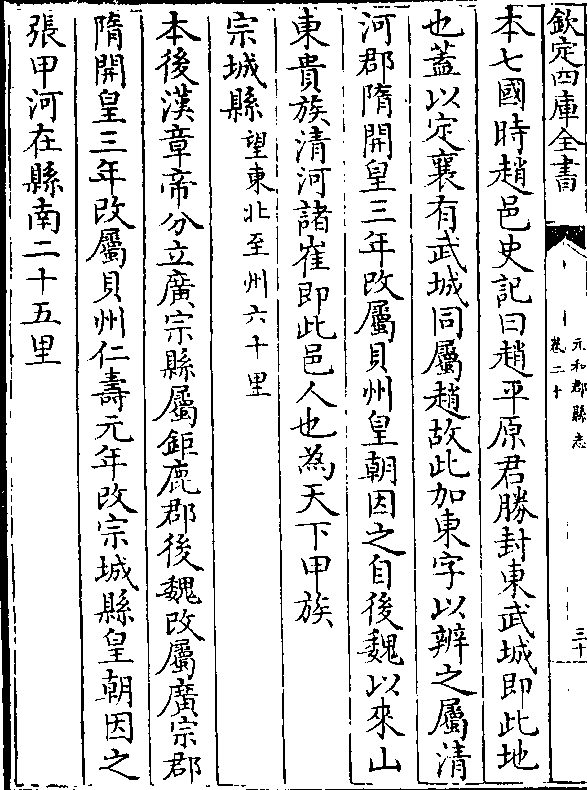 欽定四庫全書
元和郡縣志
卷二十
三十
本七國時趙邑史記曰趙平原君勝封東武城即此地
也蓋以定襄有武城同屬趙故此加東字以辨之屬清
河郡隋開皇三年改屬貝州皇朝因之自後魏以來山
東貴族清河諸崔即此邑人也為天下甲族
宗城縣望東北至州六十里
本後漢章帝分立廣宗縣屬鉅鹿郡後魏改屬廣宗郡
隋開皇三年改屬貝州仁壽元年改宗城縣皇朝因之
張甲河在縣南二十五里